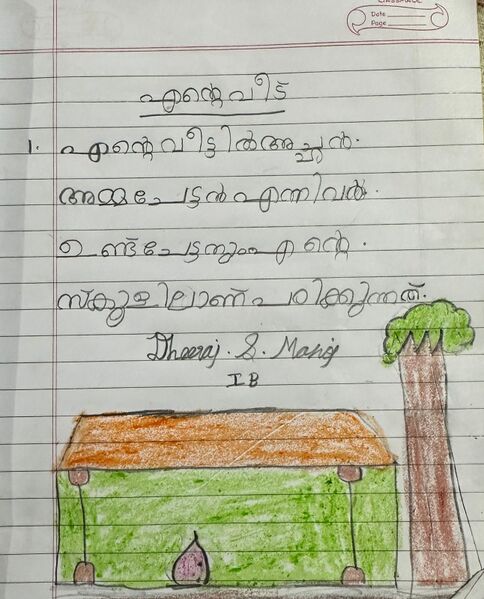 CLASSMATE
Date
Page
എന്റെ വീട്
1. എന്റെ വീട്ടിൽ അച്ഛൻ.
അമ്മ ചേട്ടൻ എന്നിവർ.
ഉണ്ട് ചേട്ടനും എന്റെ.
സ്കൂളിലാണ് പഠിക്കുന്നത്.
Dheeraj. S. Manoj
I B